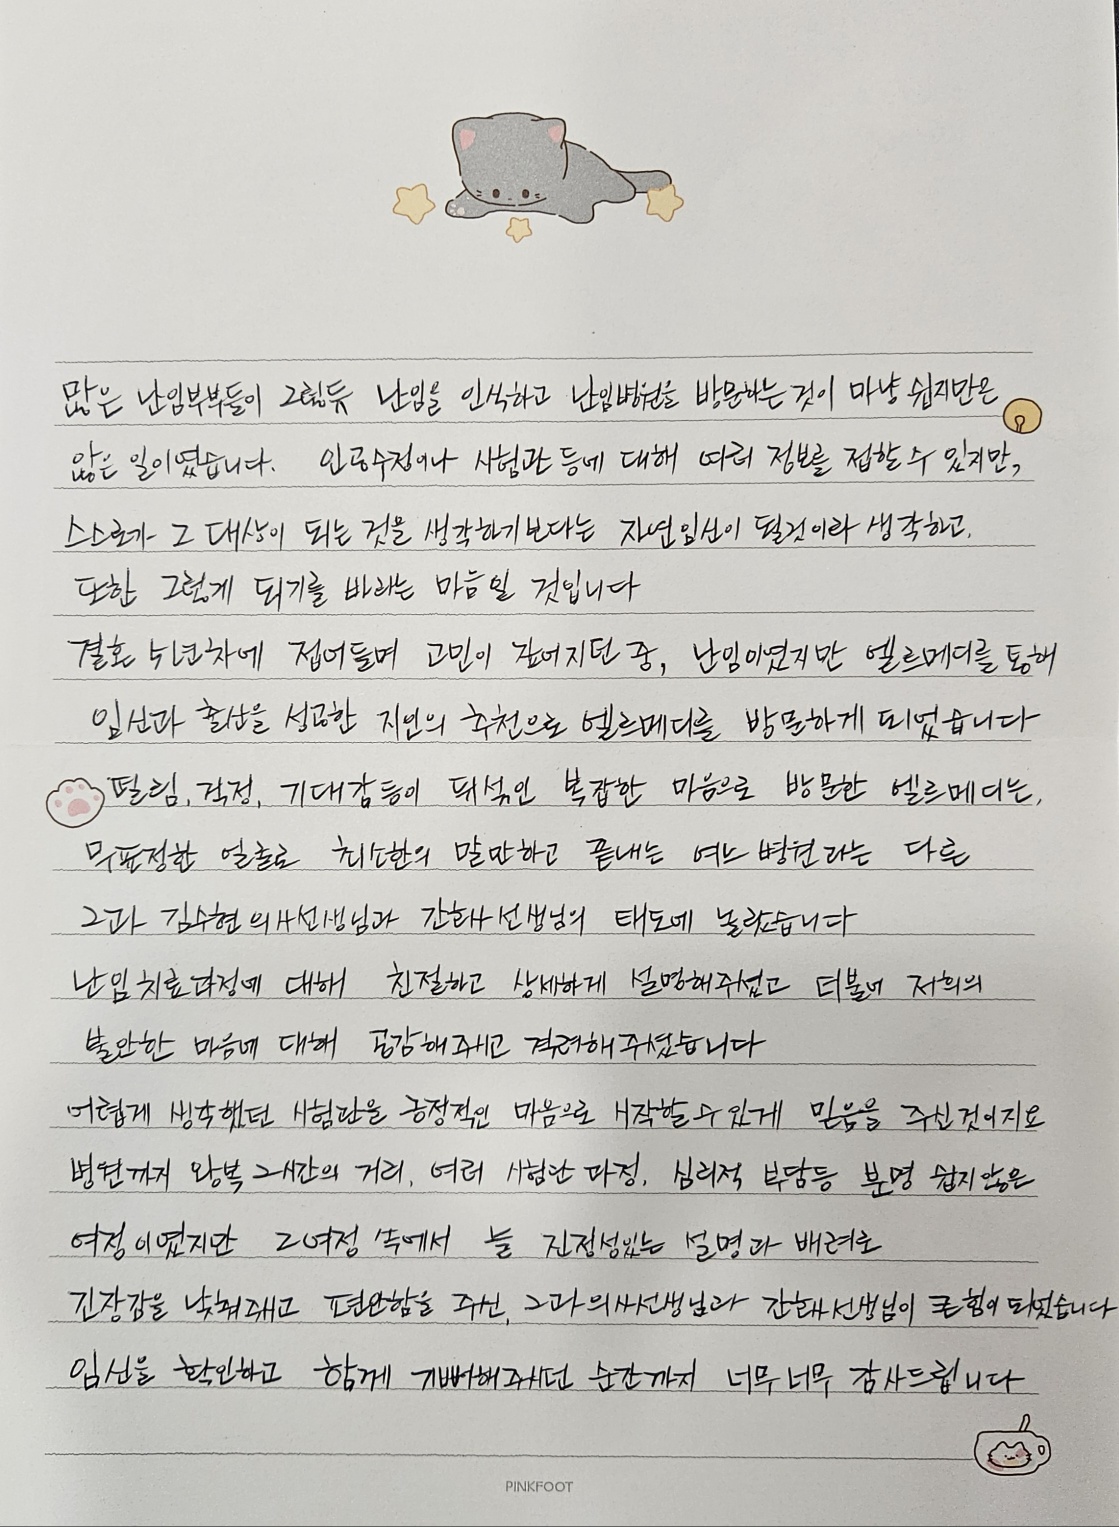 많은 난임부부들이 그렇듯 난임을 인식하고 난임병원을 방문하는 것이 마냥 쉽지만은
않은 일이였습니다. 인공수정이나 시험관 등에 대해 여러 정보를 접할 수 있지만,
스스로가 그 대상이 되는 것을 생각하기보다는 자연임신이 될것이라 생각하고,
또한 그렇게 되기를 바라는 마음일 것입니다
결혼 5년차에 접어들며 고민이 깊어지던 중, 난임이였지만 엘르메디를 통해
임신과 출산을 성공한 지인의 추천으로 엘르메디를 방문하게 되었습니다
떨림, 걱정, 기대감 등이 뒤섞인 복잡한 마음으로 방문한 엘르메디는,
무표정한 얼굴로 최소한의 말만하고 끝내는 여느 병원과는 다른
2과 김수현 의사선생님과 간호사 선생님의 태도에 놀랐습니다
난임치료과정에 대해 친절하고 상세하게 설명해주셨고 더불어 저희의
불안한 마음에 대해 공감해주시고 격려해주셨습니다
어렵게 생각했던 시험관을 긍정적인 마음으로 시작할 수 있게 믿음을 주신것이지요
병원까지 왕복 2시간의 거리, 여러 시험관 과정, 심리적 부담등 분명 쉽지않은
여정이였지만 그여정 속에서 늘 진정성있는 설명과 배려로
긴장감을 낮춰주시고 편안함을 주신, 2과 의사선생님과 간호사 선생님이 큰힘이 되었습니다
임신을 확인하고 함께 기뻐해주시던 순간까지 너무너무 감사드립니다
PINKFOOT